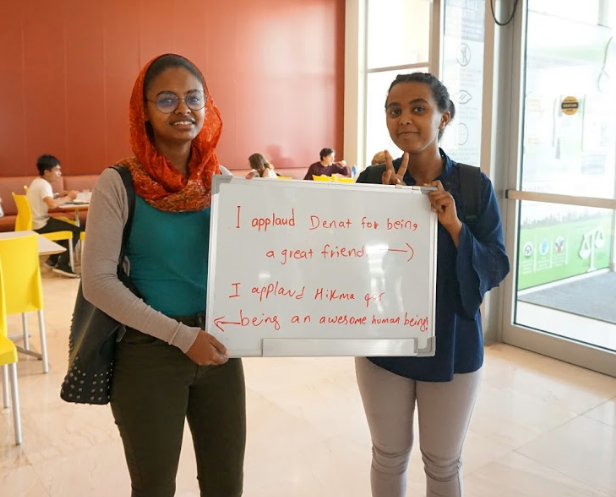 I applaud Denat for being
a great friend →
I applaud Hikma
← being an awesome human being!